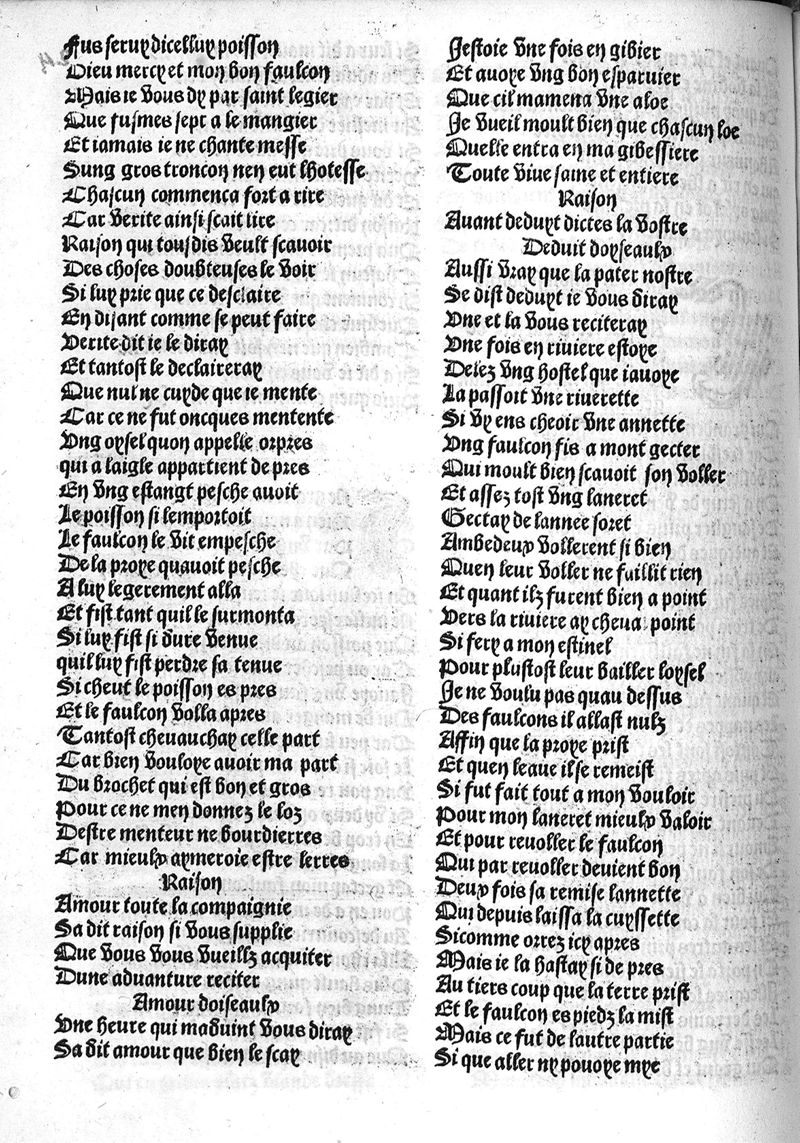 Fus seruy dicelluy poisson
Dieu mercy et mon bon faulcon
Mais ie vous dy par saint legier
Que fusmes sept a le mangier
Et iamais ie ne chante messe
Sung gros troncon nen eut lhotesse
Chascun commenca fort a rire
Car verite ainsi scait lire
Raison qui tousdis veult scauoir
Des choses doubteuses le voir
Si luy prie que ce desclaire
En disant comme se peut faire
Verite dit ie le diray
Et tantost le declaireray
Que nul ne cuyde que ie mente
Car ce ne fut oncques mentente
Vng oysel quon appelle orpres
qui a laigle appartient de pres
En vng estangt pesche auoit
Le poisson si lemportoit
Le faulcon le vit empesche
De la proye quauoit pesche
A luy legerement alla
Et fist tant quil le surmonta
Si luy fist si dure venue
quil luy fist perdre sa tenue
Si cheut le poisson es pres
Et le faulcon volla apres
Tantost cheuauchay celle part
Car bien vouloye auoir ma part
Du brochet qui est bon et gros
Pour ce ne men donnez le loz
Destre menteur ne bourdierres
Car mieulx aymeroie estre lerres
Raison
Amour toute la compaignie
Sa dit raison si vous supplie
Que vous vous vueillz acquiter
Dune aduanture reciter
Amour doiseaulx
Vne heure qui maduint vous diray
Sa dit amour que bien le scay
Jestoie vne fois en gibier
Et auoye vng bon esparuier
Que cil mamena vne aloe
Je vueil moult bien que chascun loe
Quelle entra en ma gibessiere
Toute viue saine et entiere
Raison
Auant deduyt dictes la vostre
Deduit doyseaulx
Aussi vray que la pater nostre
Se dist deduyt ie vous diray
Vne et la vous reciteray
Vne fois en riuiere estoye
Delez vng hostel que iauoye
La passoit vne riuerette
Si vy ens cheoir vne annette
Vng faulcon fis a mont gecter
Qui moult bien scauoit son voller
Et assez tost vng laneret
Gectay de lannee soret
Ambedeux vollerent si bien
Quen leur voller ne faillit rien
Et quant ilz furent bien a point
Vers la riuiere ay cheual point
Si fery a mon estinel
Pour plustost leur bailler loysel
Je ne voulu pas quau dessus
Des faulcons il allast nulz
Affin que la proye prist
Et quen leaue il se remeist
Si fut fait tout a mon vouloir
Pour mon laneret mieulx valoir
Et pour reuoller le faulcon
Qui par reuoller deuient bon
Deux fois sa remise lannette
Qui depuis laissa la cuyssette
Sicomme orrez icy apres
Mais ie la hastay si de pres
Au tiers coup que la terre prist
Et le faulcon es piedz la mist
Mais ce fut de lautre partie
Si que aller ny pouoye mye